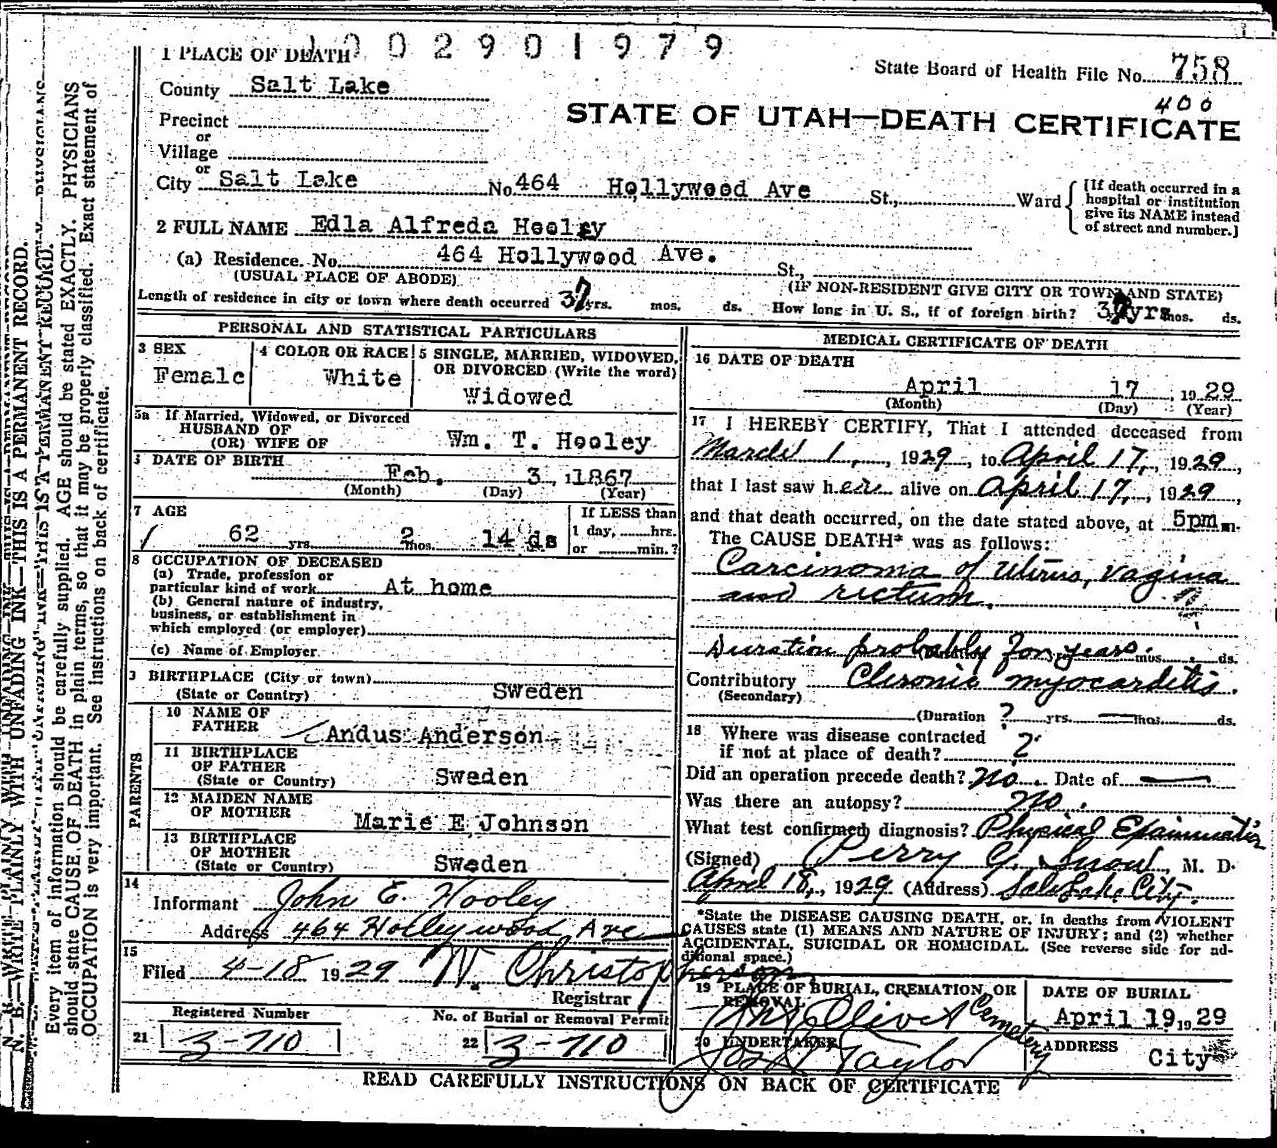 1002901979
1 PLACE OF DEATH
State Board of Health File No. 758
County Salt Lake
400
STATE OF UTAH—DEATH CERTIFICATE
Precinct
or
Village
or
City Salt Lake No. 464 Hollywood Ave St., Ward
[If death occurred in a
hospital or institution
give its NAME instead
of street and number.]
2 FULL NAME Edla Alfreda Hooley
(a) Residence. No. 464 Hollywood Ave. St.,
(USUAL PLACE OF ABODE) (IF NON-RESIDENT GIVE CITY OR TOWN AND STATE)
Length of residence in city or town where death occurred 37 yrs. mos. ds. How long in U. S., if of foreign birth? 37 yrs mos. ds.
PERSONAL AND STATISTICAL PARTICULARS
3 SEX
Female
4 COLOR OR RACE
White
5 SINGLE, MARRIED, WIDOWED,
OR DIVORCED (Write the word)
Widowed
5a If Married, Widowed, or Divorced
HUSBAND OF
(OR) WIFE OF Wm. T. Hooley
DATE OF BIRTH
Feb. 3, 1867
(Month) (Day) (Year)
7 AGE
62 yrs. 2 mos. 14 ds
If LESS than
1 day, hrs.
or min.?
8 OCCUPATION OF DECEASED
(a) Trade, profession or
particular kind of work At home
(b) General nature of industry,
business, or establishment in
which employed (or employer)
(c) Name of Employer
BIRTHPLACE (City or town)
(State or Country) Sweden
PARENTS
10 NAME OF
FATHER Andus Anderson
11 BIRTHPLACE
OF FATHER
(State or Country) Sweden
12 MAIDEN NAME
OF MOTHER Marie E Johnson
13 BIRTHPLACE
OF MOTHER
(State or Country) Sweden
14
Informant John E. Hooley
Address 464 Hollywood Ave
15
Filed 4-18 1929 W. Christopherson
Registrar
Registered Number
21 3-710
No. of Burial or Removal Permit
22 3-710
MEDICAL CERTIFICATE OF DEATH
16 DATE OF DEATH
April 17, 1929
(Month) (Day) (Year)
17 I HEREBY CERTIFY, That I attended deceased from
March 1, 1929, to April 17, 1929,
that I last saw her alive on April 17, 1929,
and that death occurred, on the date stated above, at 5pm m.
The CAUSE DEATH* was as follows:
Carcinoma of Uterus, vagina
and rectum.
Duration probably for years. mos. ds.
Contributory Chronic myocarditis.
(Secondary)
(Duration ? yrs. — mos. ds.
18 Where was disease contracted
if not at place of death? ?
Did an operation precede death? No. Date of —
Was there an autopsy? No.
What test confirmed diagnosis? Physical Examination
(Signed) Perry G. Snow, M. D.
April 18, 1929 (Address) Salt Lake City.
*State the DISEASE CAUSING DEATH, or, in deaths from VIOLENT
CAUSES state (1) MEANS AND NATURE OF INJURY; and (2) whether
ACCIDENTAL, SUICIDAL OR HOMICIDAL. (See reverse side for ad-
ditional space.)
19 PLACE OF BURIAL, CREMATION, OR
REMOVAL
Mt Olivet Cemetery
DATE OF BURIAL
April 19, 1929
20 UNDERTAKER
Jos Taylor
ADDRESS
City
READ CAREFULLY INSTRUCTIONS ON BACK OF CERTIFICATE
N. B.—WRITE PLAINLY WITH UNFADING INK—THIS IS A PERMANENT RECORD.
Every item of information should be carefully supplied. AGE should be stated EXACTLY. PHYSICIANS
should state CAUSE OF DEATH in plain terms, so that it may be properly classified. Exact statement of
OCCUPATION is very important. See Instructions on back of certificate.